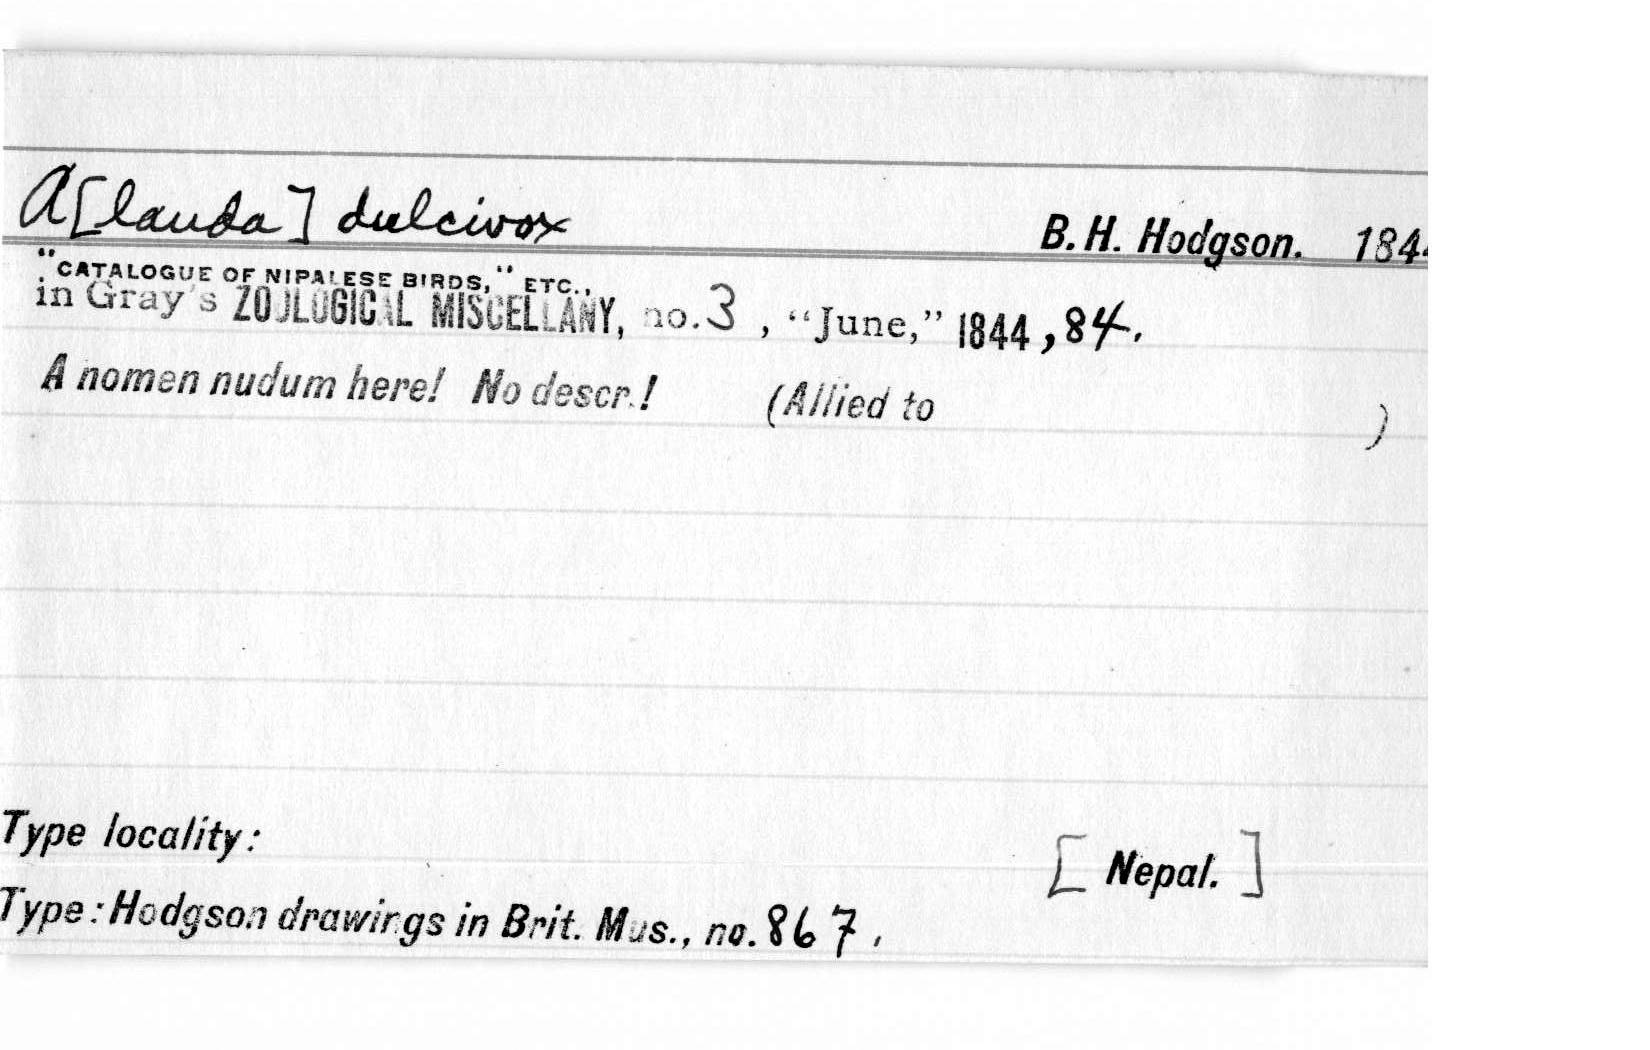 A[lauda] dulcivox B. H. Hodgson. 184
"CATALOGUE OF NIPALESE BIRDS," ETC.,
in Gray's ZOOLOGICAL MISCELLANY, no. 3, "June," 1844, 84.
A nomen nudum here! No descr.! (Allied to )
Type locality: [Nepal.]
Type: Hodgson drawings in Brit. Mus., no. 867.